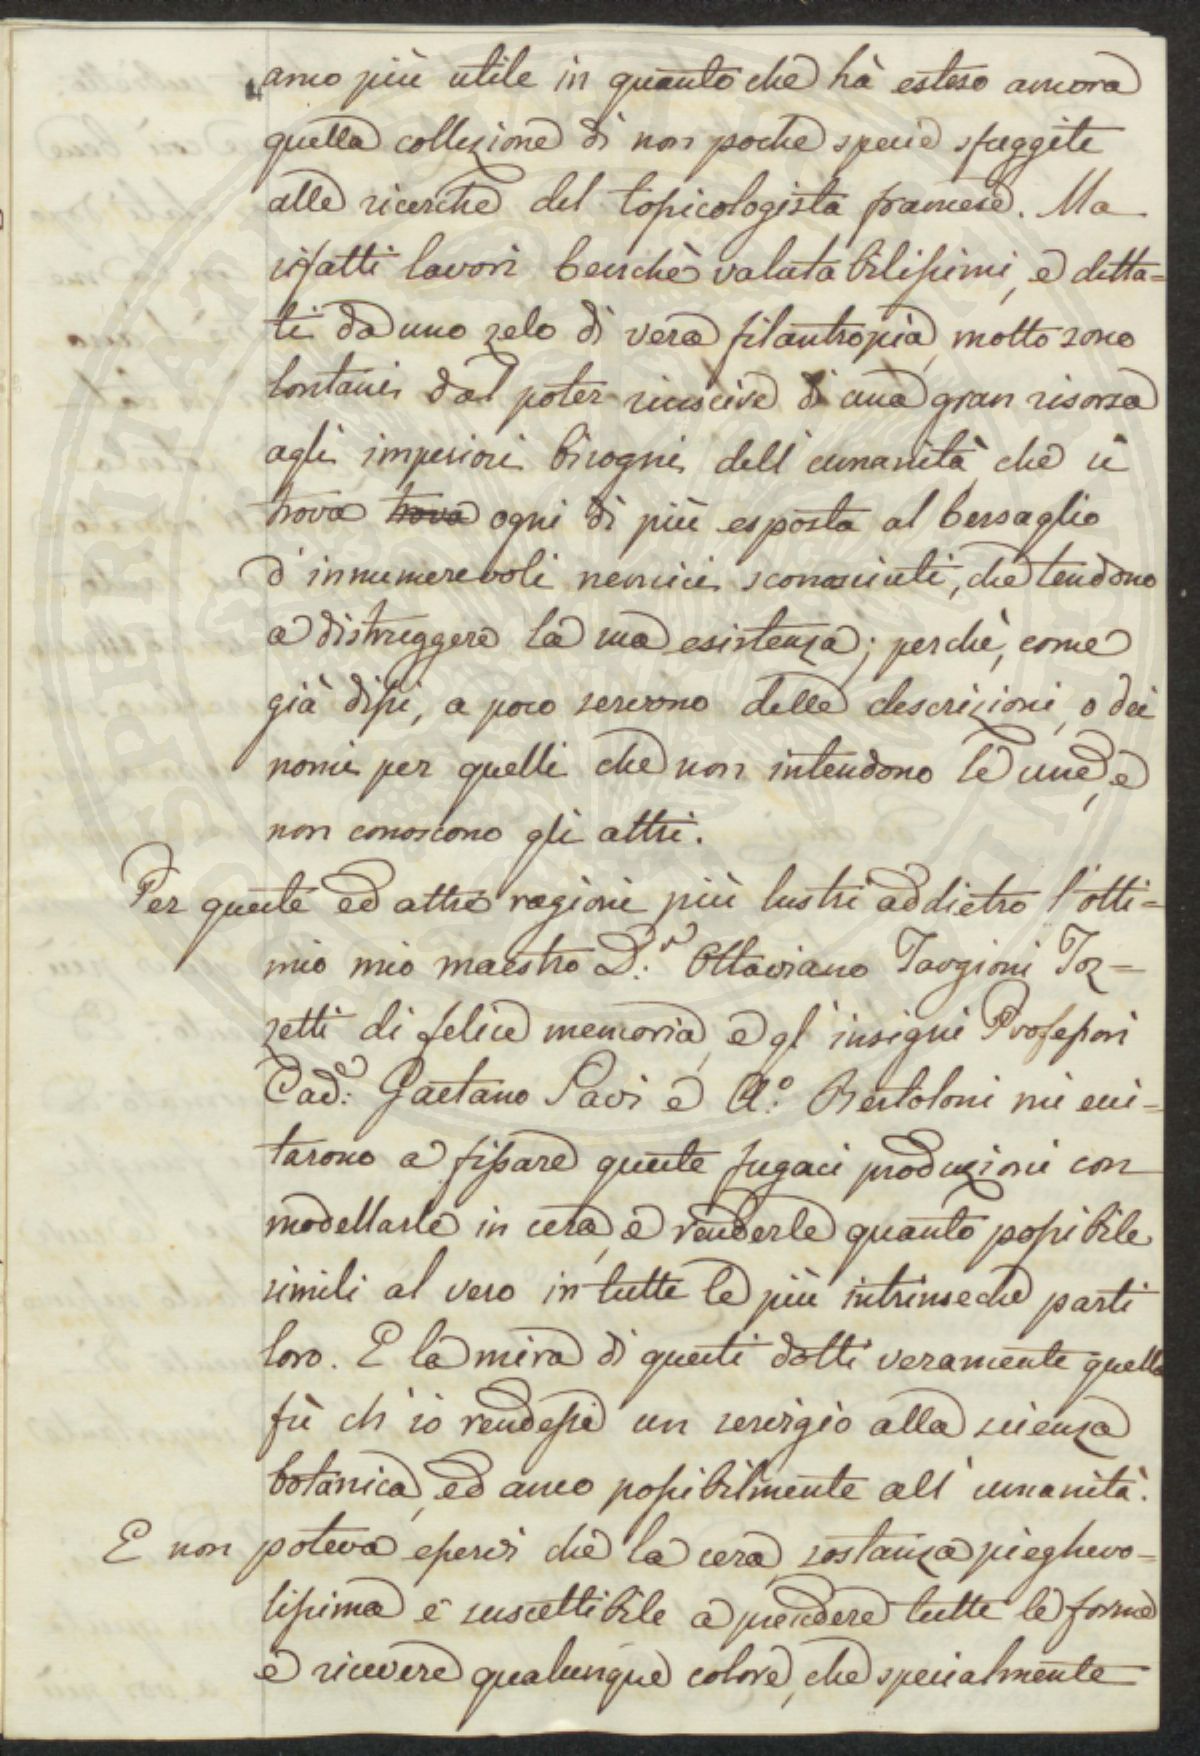 anco più utile in quanto che hà esteso ancora
quella collezione di non poche specie sfuggite
alle ricerche del topicologista francese. Ma
sifatti lavori benchè valutabilissimi, e detta=
ti da uno zelo di vera filantropia, molto sono
lontani dal poter riuscire di una gran risorsa
agli imperiosi bisogni dell'umanità, che si
trova trova ogni dì più esposta al bersaglio
d'innumerevoli nemici sconosciuti, che tendono
a distruggere la sua esistenza; perchè, come
già dissi, a poco servono delle descrizioni, o dei
nomi per quelli che non intendono le une, e
non conoscono gli altri.
Per queste ed altre ragioni più lustri addietro l'otti=
mio mio maestro D.r Ottaviano Targioni Toz=
zetti di felice memoria, e gl'insigni Professori
Cad.e Gaetano Savi e A.o Bertoloni mi eci=
tarono a fissare queste fugaci produzioni con
modellarle in cera, e renderle quanto possibile
simili al vero in tutte le più intrinseche parti
loro. E la mira di questi dotti veramente quella
fù ch'io rendessi un servigio alla scienza
botanica, ed anco possibilmente all'umanità.
E non poteva esservi che la cera, sostanza pieghevo=
lissima e suscettibile a prendere tutte le forme
e ricevere qualunque colore, che specialmente